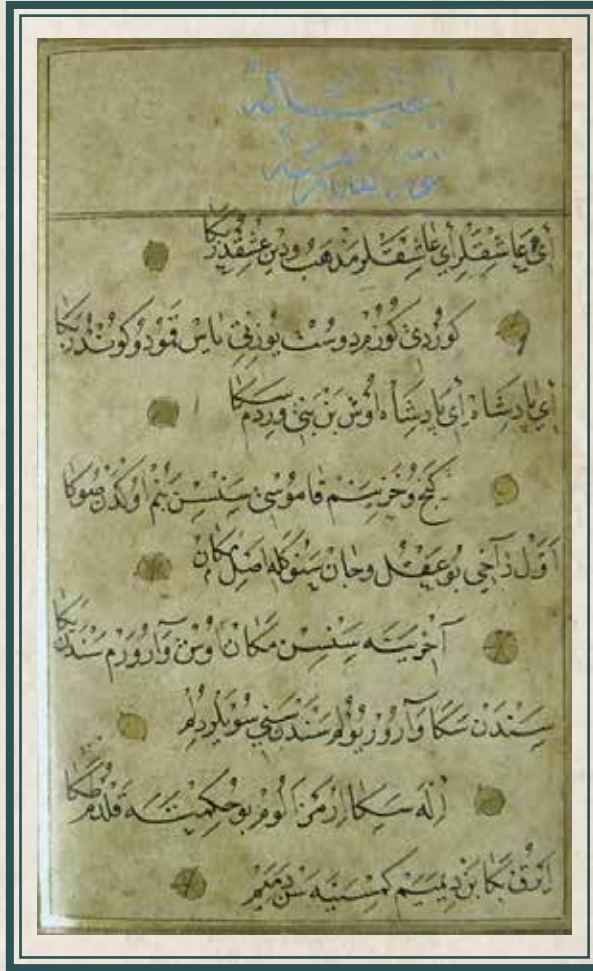 اَيْ عَاشِقْلَرْ اَيْ عَاشِقْلَرْ مَذْهَبُ ودِينْ عِشْقِدُرْ بَكَا
كُورْدِى كُوزُمْ دوسْتْ يُوزِنِى يَاسْ قَمُو دُوكُونْدُرْ بَكَا
اَيْ پَادِشَاهْ اَيْ پَادِشَاهْ اُوشْ بَنْ بَنِى وِرْدُمْ سَكَا
كَنْجُ وخَزِينَمْ قَامُوسِى سِنْسِنْ بَنُمْ اوكْدَنْ صُوكَا
اَوَّلْ دَاخِى بُو عَقْلُ وجَانْ سَنُوكْلَه اَصْلِ مَكَانْ
آخِرْ يِنَه سِنْسِنْ مَكَانْ اُوشْ وَارُورَمْ سَنْدَنْ يَكَا
سِنْدَنْ سَكَا وَارُورْ يُولُمْ سَنْدَنْ سَنِى سُويْلَرْ دِلُمْ
اِلَّهْ سَكَا اِرْمَزْ اَلُومْ بُو حِكْمَتَه قَلْدُمْ طَكَا
اَيْرُقْ بَكَا بَنْ دِيمَيَمْ كِمْسَنَيَه سَنْ دِمَيَمْ